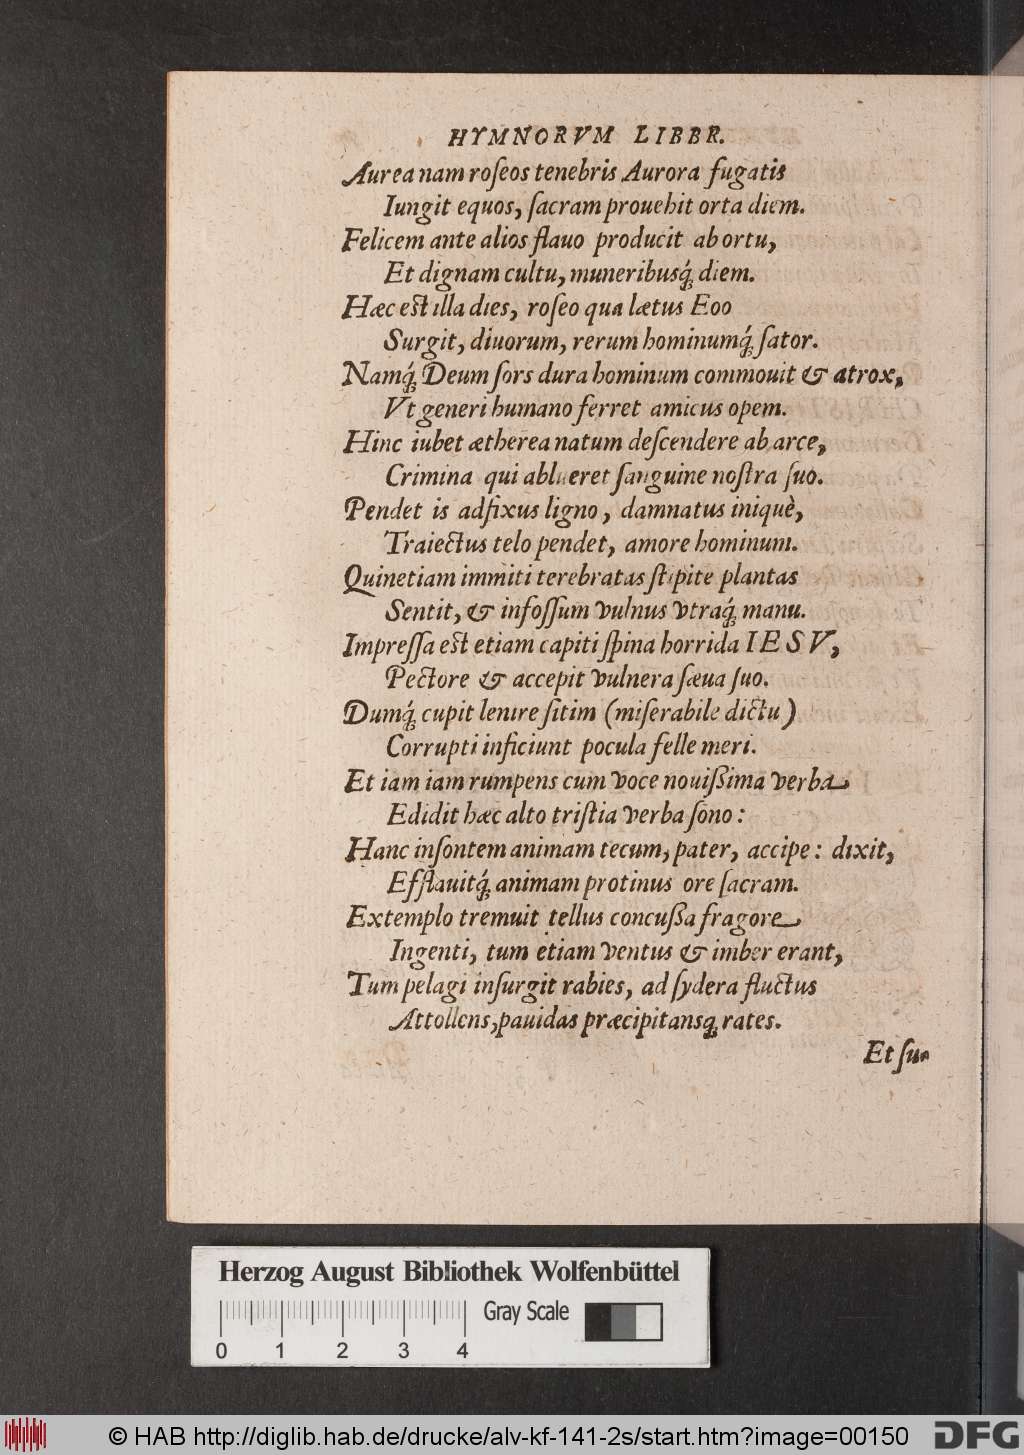 HYMNORVM LIBBR.
Aurea nam roſeos tenebris Aurora fugatis
Iungit equos, ſacram prouehit orta diem.
Felicem ante alios flauo producit ab ortu,
Et dignam cultu, muneribusq́ꝫ diem.
Hæc est illa dies, roſeo qua lætus Eoo
Surgit, diuorum, rerum hominumq́ꝫ ſator.
Namq́ꝫ Deum ſors dura hominum commouit & atrox,
Vt generi humano ferret amicus opem.
Hinc iubet ætherea natum deſcendere ab arce,
Crimina qui ablueret ſanguine noſtra ſuo.
Pendet is adfixus ligno, damnatus iniquè,
Traiectus telo pendet, amore hominum.
Quinetiam immiti terebratas ſtipite plantas
Sentit, & infoſſum vulnus vtraq́ꝫ manu.
Impreſſa est etiam capiti ſpina horrida IESV,
Pectore & accepit vulnera ſæua ſuo.
Dumq́ꝫ cupit lenire ſitim (miſerabile dictu)
Corrupti inficiunt pocula felle meri.
Et iam iam rumpens cum voce nouißima verba
Edidit hæc alto triſtia verba ſono:
Hanc inſontem animam tecum, pater, accipe: dixit,
Efflauitq́ꝫ animam protinus ore ſacram.
Extemplo tremuit tellus concußa fragore
Ingenti, tum etiam ventus & imber erant,
Tum pelagi inſurgit rabies, ad ſydera fluctus
Attollens, pauidas præcipitansqꝫ rates.
Et ſu-
Herzog August Bibliothek Wolfenbüttel
Gray Scale
0 1 2 3 4
© HAB http://diglib.hab.de/drucke/alv-kf-141-2s/start.htm?image=00150
DFG